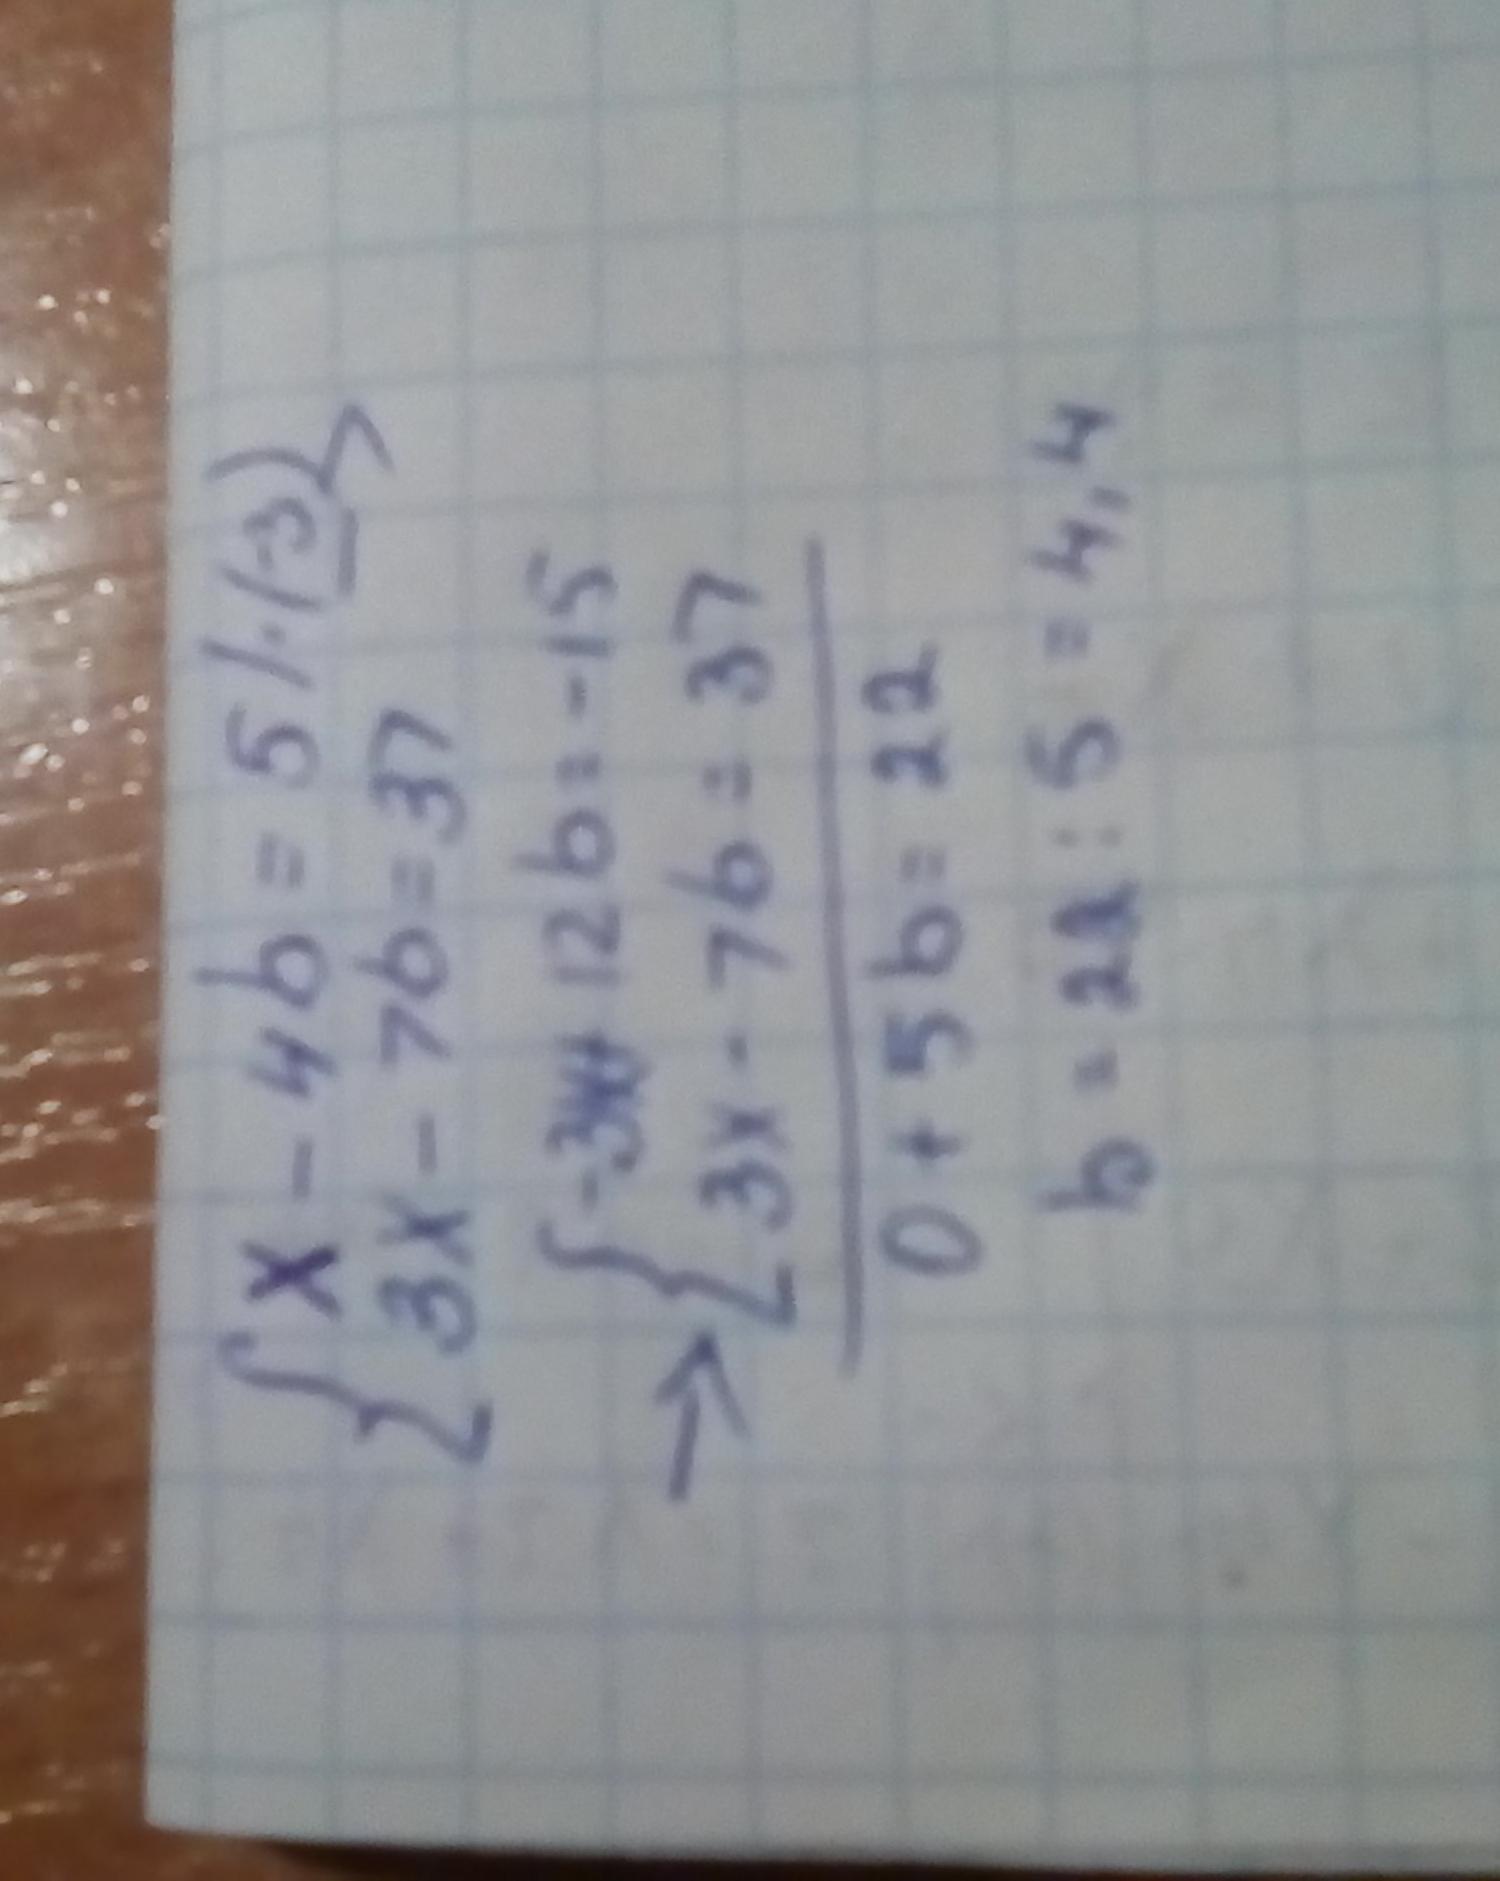 { x - 4b = 5 / · (-3)
3x - 7b = 37
{ -3x + 12b = -15
→ 3x - 7b = 37
0 + 5b = 22
b = 22 : 5 = 4,4